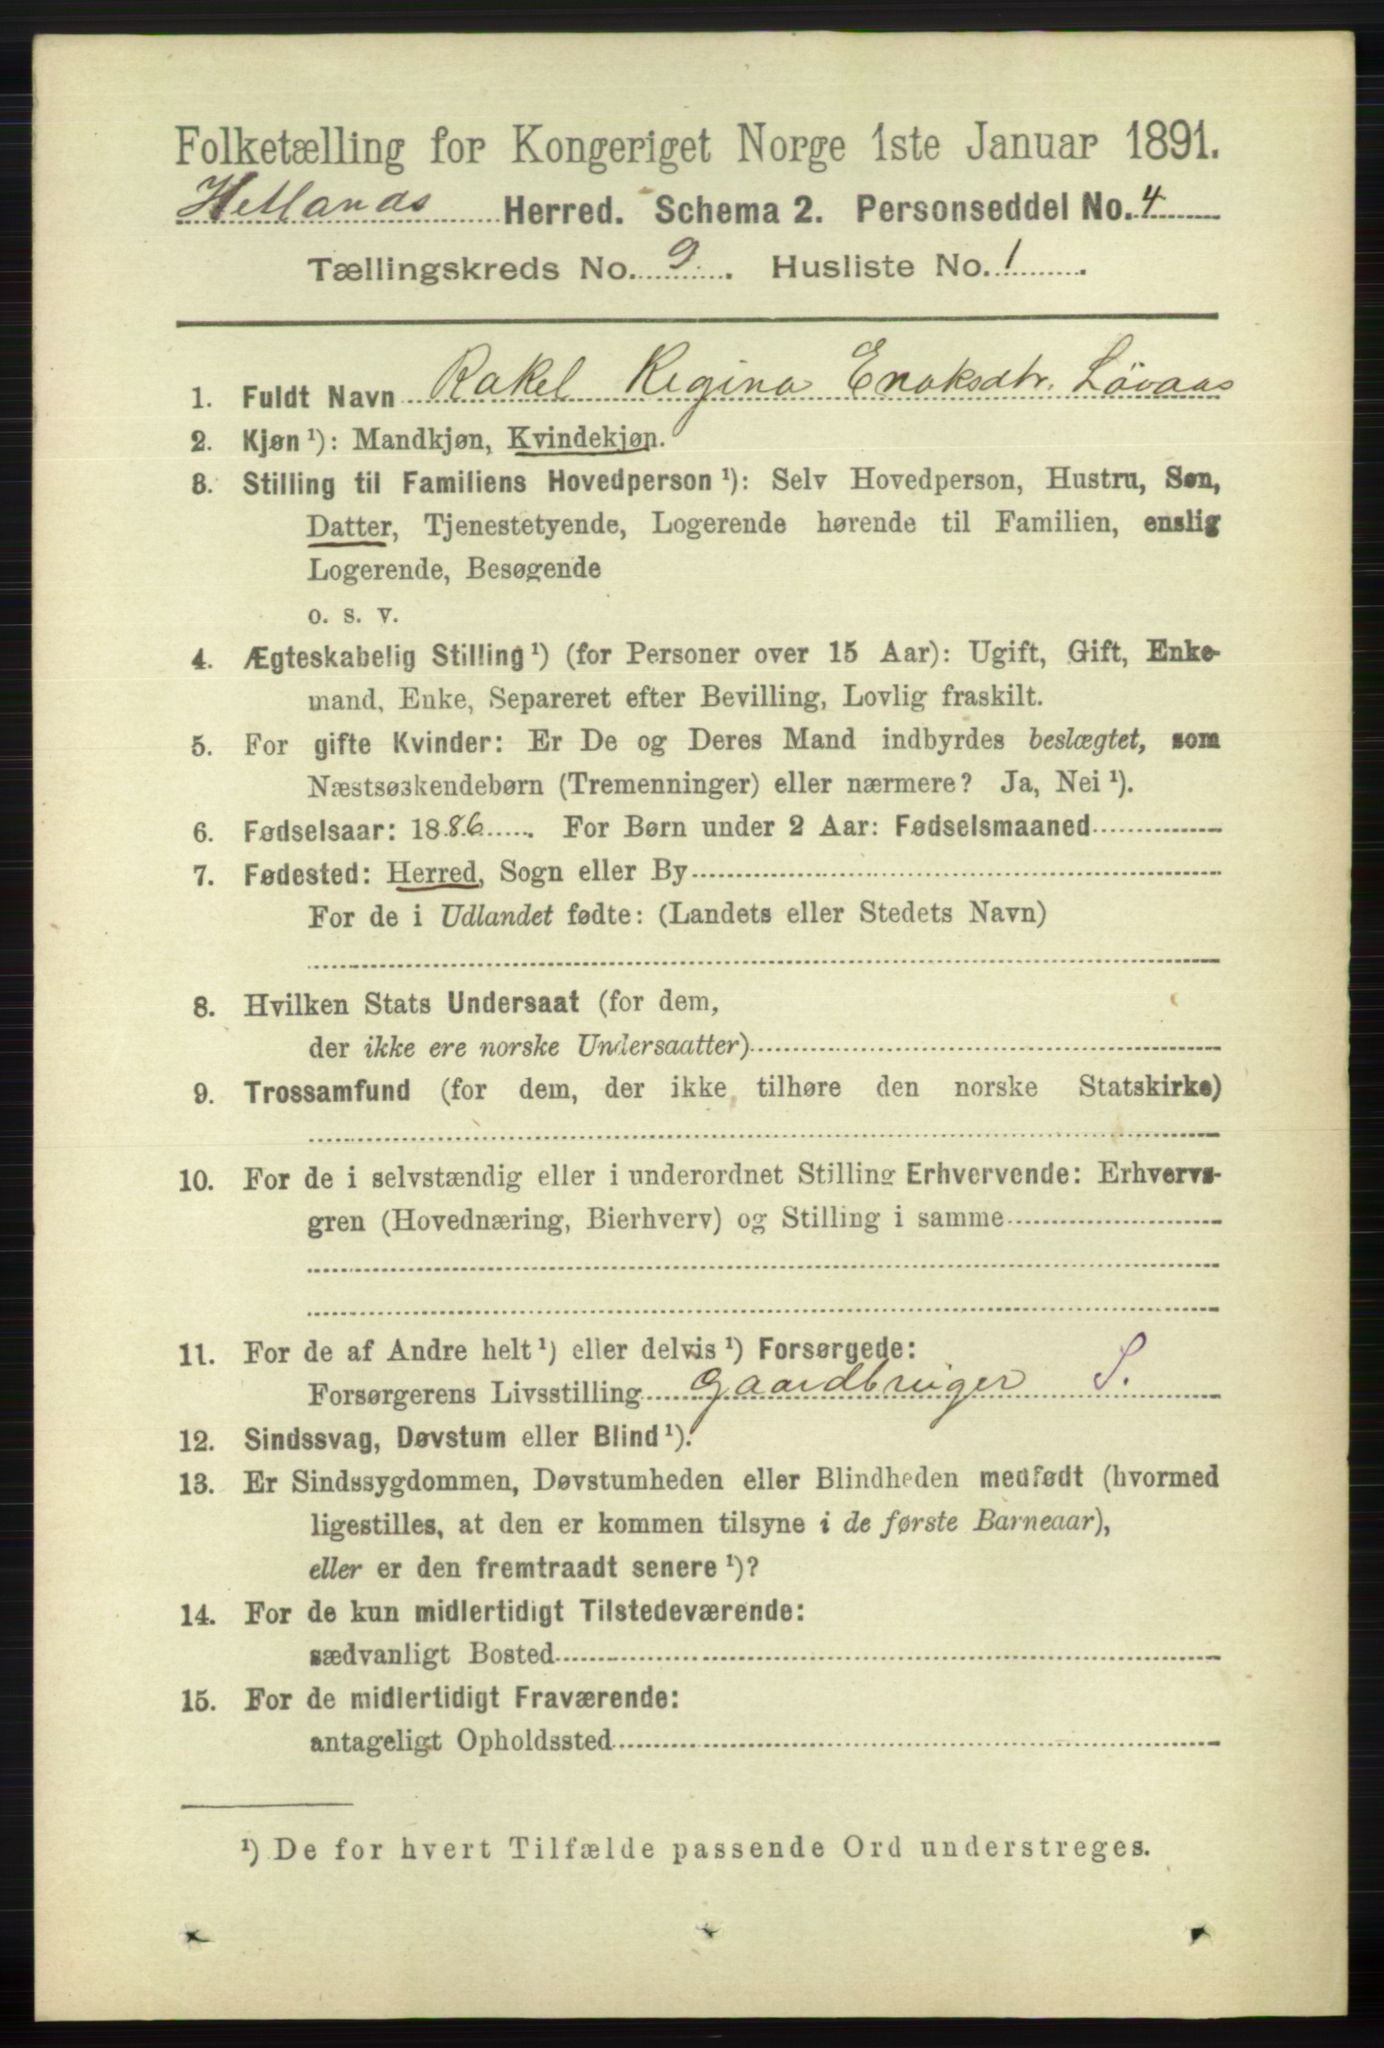 Folketælling for Kongeriget Norge 1ste Januar 1891.
Hetlands Herred. Schema 2. Personseddel No. 4
Tællingskreds No. 9. Husliste No. 1.
1. Fuldt Navn Rakel Regina Enoksdtr. Lövaas
2. Kjøn ¹): Mandkjøn, Kvindekjøn.
3. Stilling til Familiens Hovedperson ¹): Selv Hovedperson, Hustru, Søn,
Datter, Tjenestetyende, Logerende hørende til Familien, enslig
Logerende, Besøgende
o. s. v.
4. Ægteskabelig Stilling ¹) (for Personer over 15 Aar): Ugift, Gift, Enke-
mand, Enke, Separeret efter Bevilling, Lovlig fraskilt.
5. For gifte Kvinder: Er De og Deres Mand indbyrdes beslægtet, som
Næstsøskendebørn (Tremenninger) eller nærmere? Ja, Nei ¹).
6. Fødselsaar: 1886. For Børn under 2 Aar: Fødselsmaaned
7. Fødested: Herred, Sogn eller By
For de i Udlandet fødte: (Landets eller Stedets Navn)
8. Hvilken Stats Undersaat (for dem,
der ikke ere norske Undersaatter)
9. Trossamfund (for dem, der ikke tilhøre den norske Statskirke)
10. For de i selvstændig eller i underordnet Stilling Erhvervende: Erhvervs-
gren (Hovednæring, Bierhverv) og Stilling i samme
11. For de af Andre helt ¹) eller delvis ¹) Forsørgede:
Forsørgerens Livsstilling Gaardbruger S.
12. Sindssvag, Døvstum eller Blind ¹).
13. Er Sindssygdommen, Døvstumheden eller Blindheden medfødt (hvormed
ligestilles, at den er kommen tilsyne i de første Barneaar),
eller er den fremtraadt senere ¹)?
14. For de kun midlertidigt Tilstedeværende:
sædvanligt Bosted
15. For de midlertidigt Fraværende:
antageligt Opholdssted
¹) De for hvert Tilfælde passende Ord understreges.